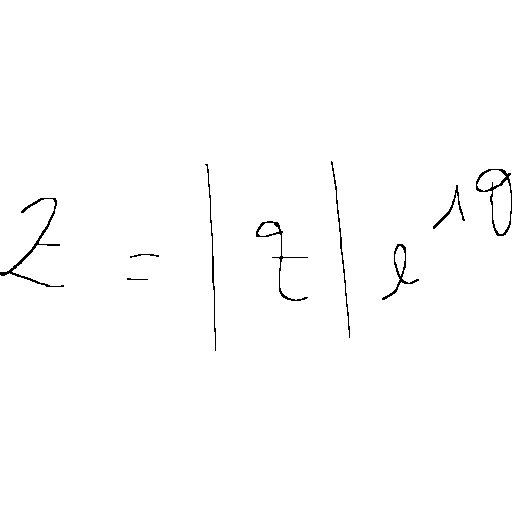 z = |z| e^{iφ}